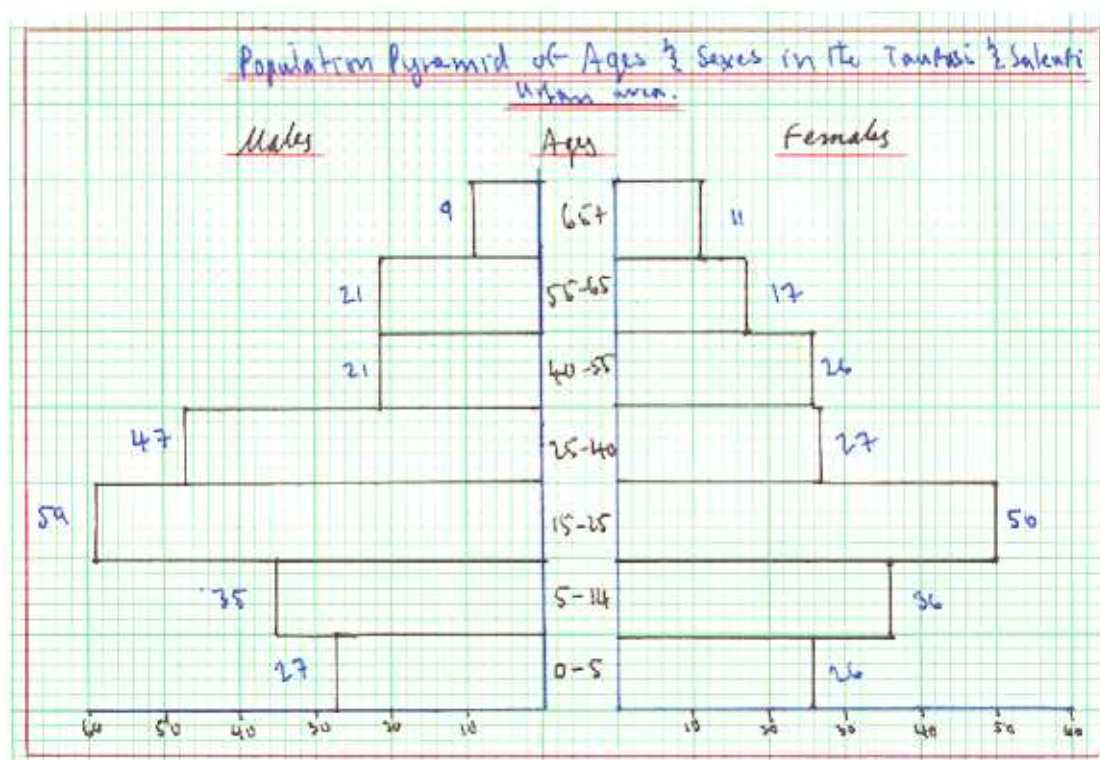 Population Pyramid of Ages & Sexes in the & 
Urban area.
Males Ages Females
9 65+ 11
21 55-65 17
21 40-55 26
47 25-40 27
59 15-25 50
35 5-14 36
27 0-5 26
60 50 40 30 20 10 10 20 30 40 50 60